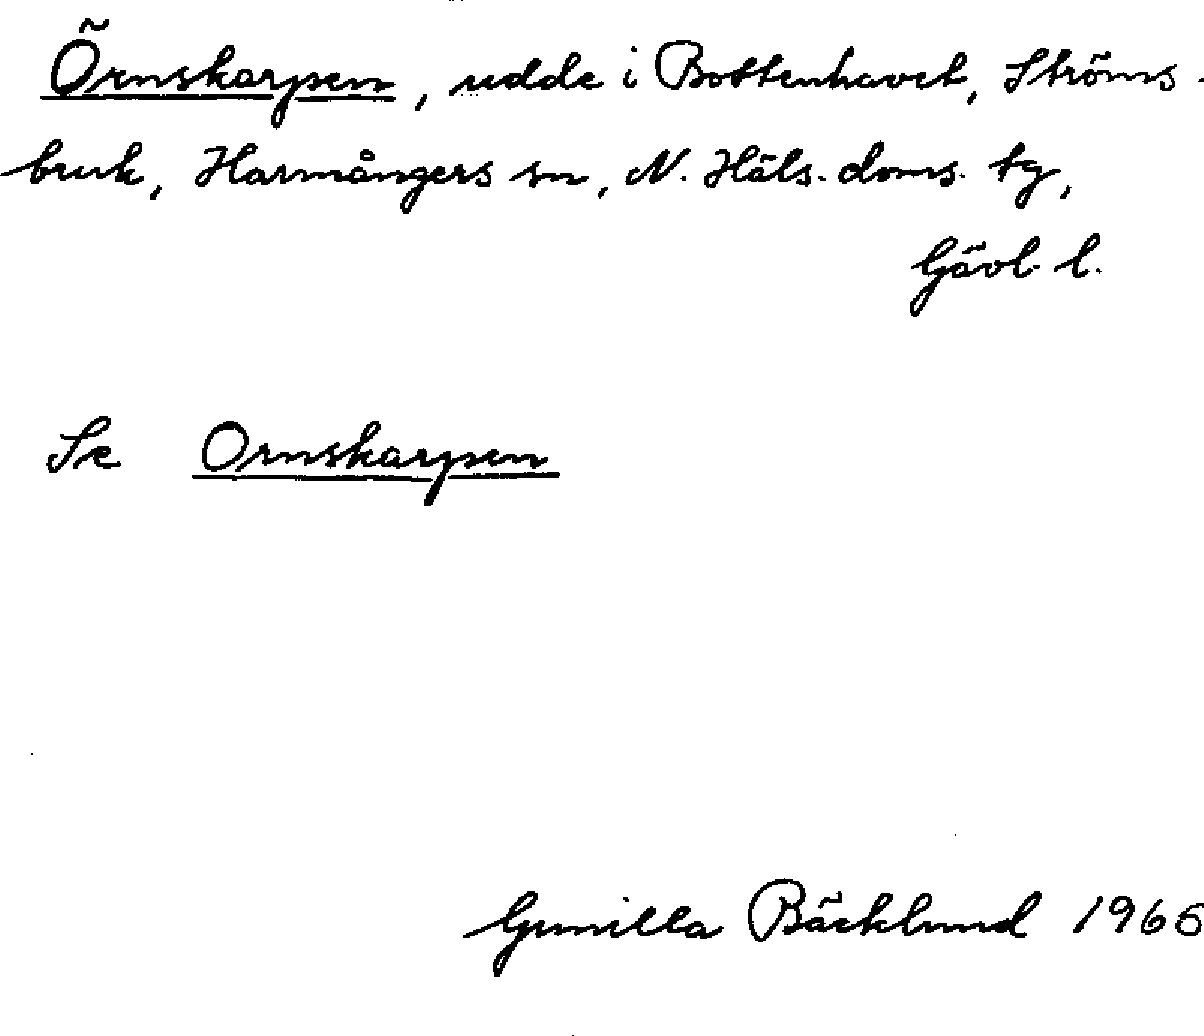 Örnskarpen, udde i Bottenhavet, Ströms-
bruk, Harmångers sn, N. Häls. doms. tg,
Gävl. l.
Se Ornskarpen
Gunilla Bäcklund 1966